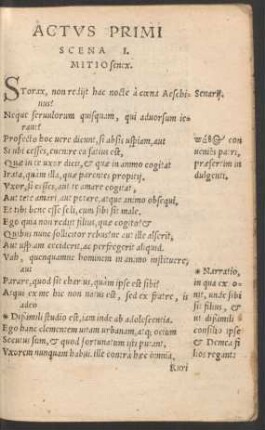 ACTVS PRIMI
SCENA I.
MITIO senex.
STorax, non redijt hac nocte à cœna Aeschi- Senarij.
nus?
Neque seruulorum quisquam, qui aduorsum ie-
rant?
Profecto hoc vere dicunt, si absis uspiam, aut
Si ubi cesses, euenire ea satius est,
Quæ in te uxor dicit, & quæ in animo cogitat
Irata, quàm illa, quæ parentes propitij.
Vxor, si cesses, aut te amare cogitat,
Aut tete amari, aut potare, atque animo obsequi,
Et tibi bene esse soli, cum sibi sit male.
Ego quia non redijt filius, quæ cogito? &
Quibus nunc sollicitor rebus? ne aut ille alserit,
Aut uspiam ceciderit, ac perfregerit aliquid.
Vah, quenquamne hominem in animo instituere,
aut
Parare, quod sit charius, quàm ipse est sibi?
Atqui ex me hic non natus est, sed ex fratre, is
adeo
* Dissimili studio est, iam inde ab adolescentia.
Ego hanc clementem uitam urbanam, atque ocium
Secutus sum, & quod fortunatum isti putant,
Vxorem nunquam habui. ille contra hæc omnia,
con
uenies patri,
præsertim in
dulgenti.
* Narratio,
in qua ex o-
nit, unde sibi
sit filius, &
ut dissimili
consilio ipse
& Demea fi
lios regant.